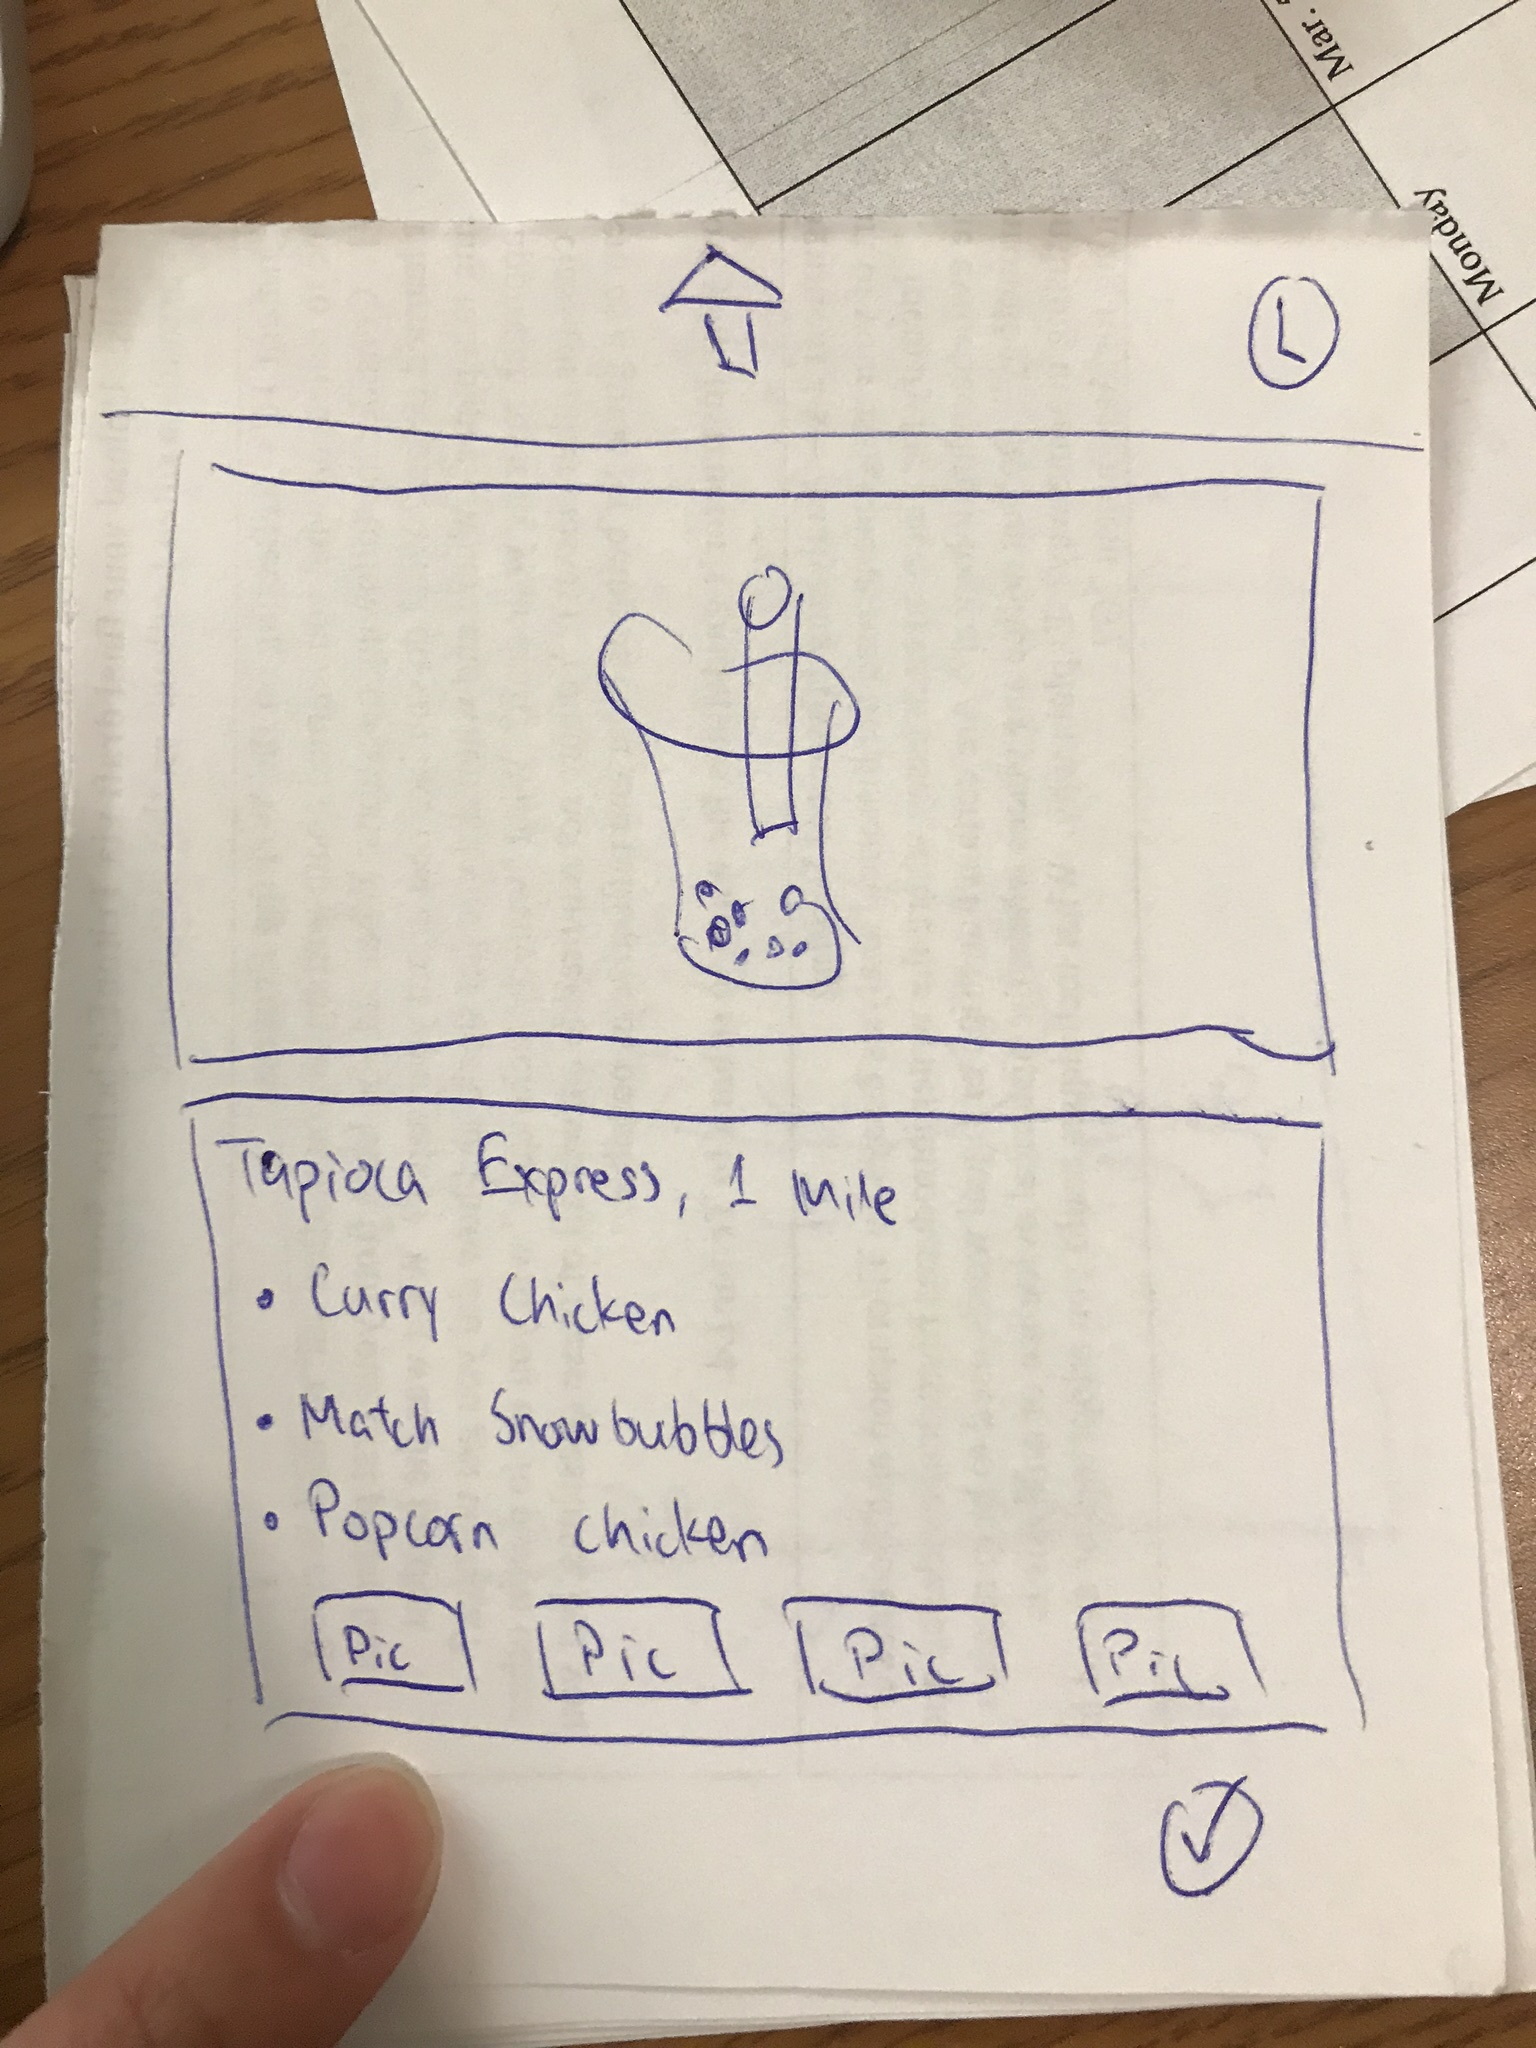 Mar.
Monday
L
Tapioca Express, 1 Mile
• Curry Chicken
• Match Snowbubbles
• Popcorn chicken
Pic Pic Pic Pic